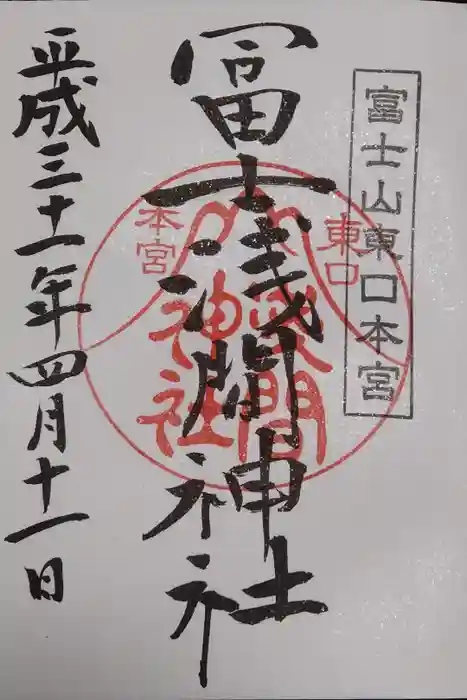 富士山東口本宮
冨士浅間神社
平成三十一年四月十一日
東口
本宮
間
神社